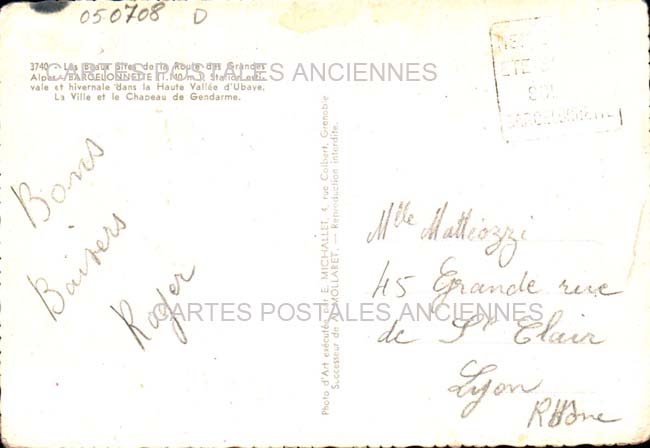 050708 D
3740 - Les Beaux Sites de la Route des Grandes
Alpes - BARCELONNETTE m.) Station esti-
vale et hivernale dans la Haute Vallée d'Ubaye.
La Ville et le Chapeau de Gendarme.
CARTES POSTALES ANCIENNES
Bons
Baisers
Roger
Photo d'Art exécutée par E. MICHALLET, 4, rue Colbert, Grenoble
Successeur de A. MOLLARET. — Reproduction interdite.
ETE
Mlle Mattéozzi
45 Grande rue
de St Clair
Lyon
Rhône
CARTES POSTALES ANCIENNES